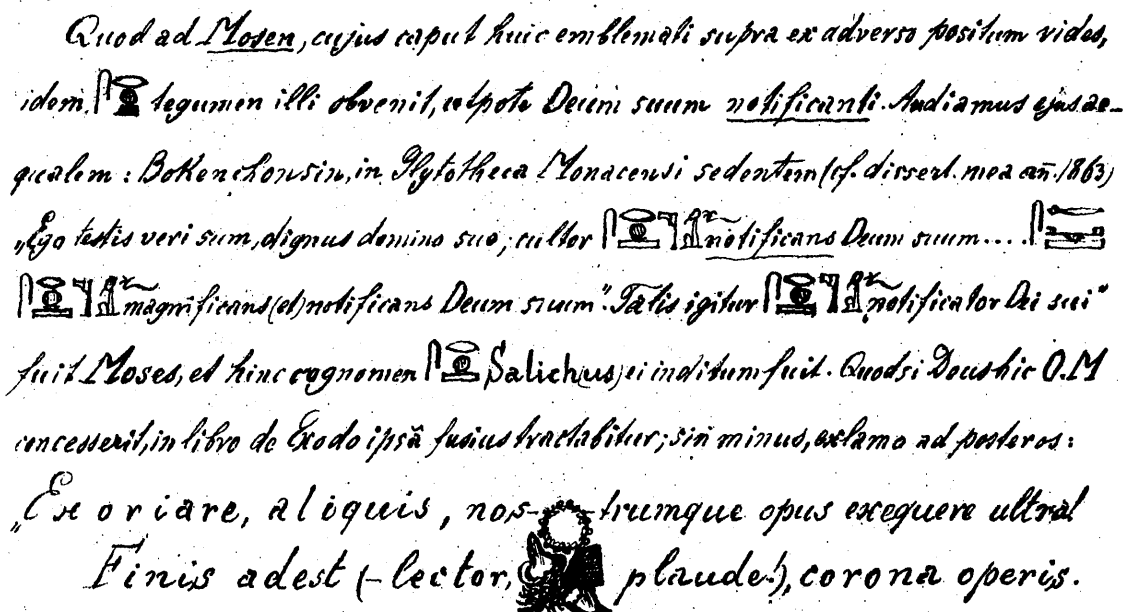 Quod ad Mosen, cujus caput huic emblemati supra ex adverso positum vides,
idem tegumen illi obvenit, utpote Deum suum notificanti. Audiamus ejus ae-
qualem: Bokenchonsin, in Glytotheca Monacensi sedentem (cf. dissert. mea añ. 1863)
„Ego testis veri sum, dignus domino suo, cultor notificans Deum suum....
magnificans (et) notificans Deum suum". Talis igitur notificator Dei sui"
fuit Moses, et hinc cognomen Salich(us) ei inditum fuit. Quodsi Deus hic O.M
concesserit, in libro de Exodo ipsâ fusius tractabitur; sin minus, exlamo ad posteros:
„Exoriare, aliquis, nos-trumque opus exequere ultra!
Finis adest (– lector, plaude!), corona operis.